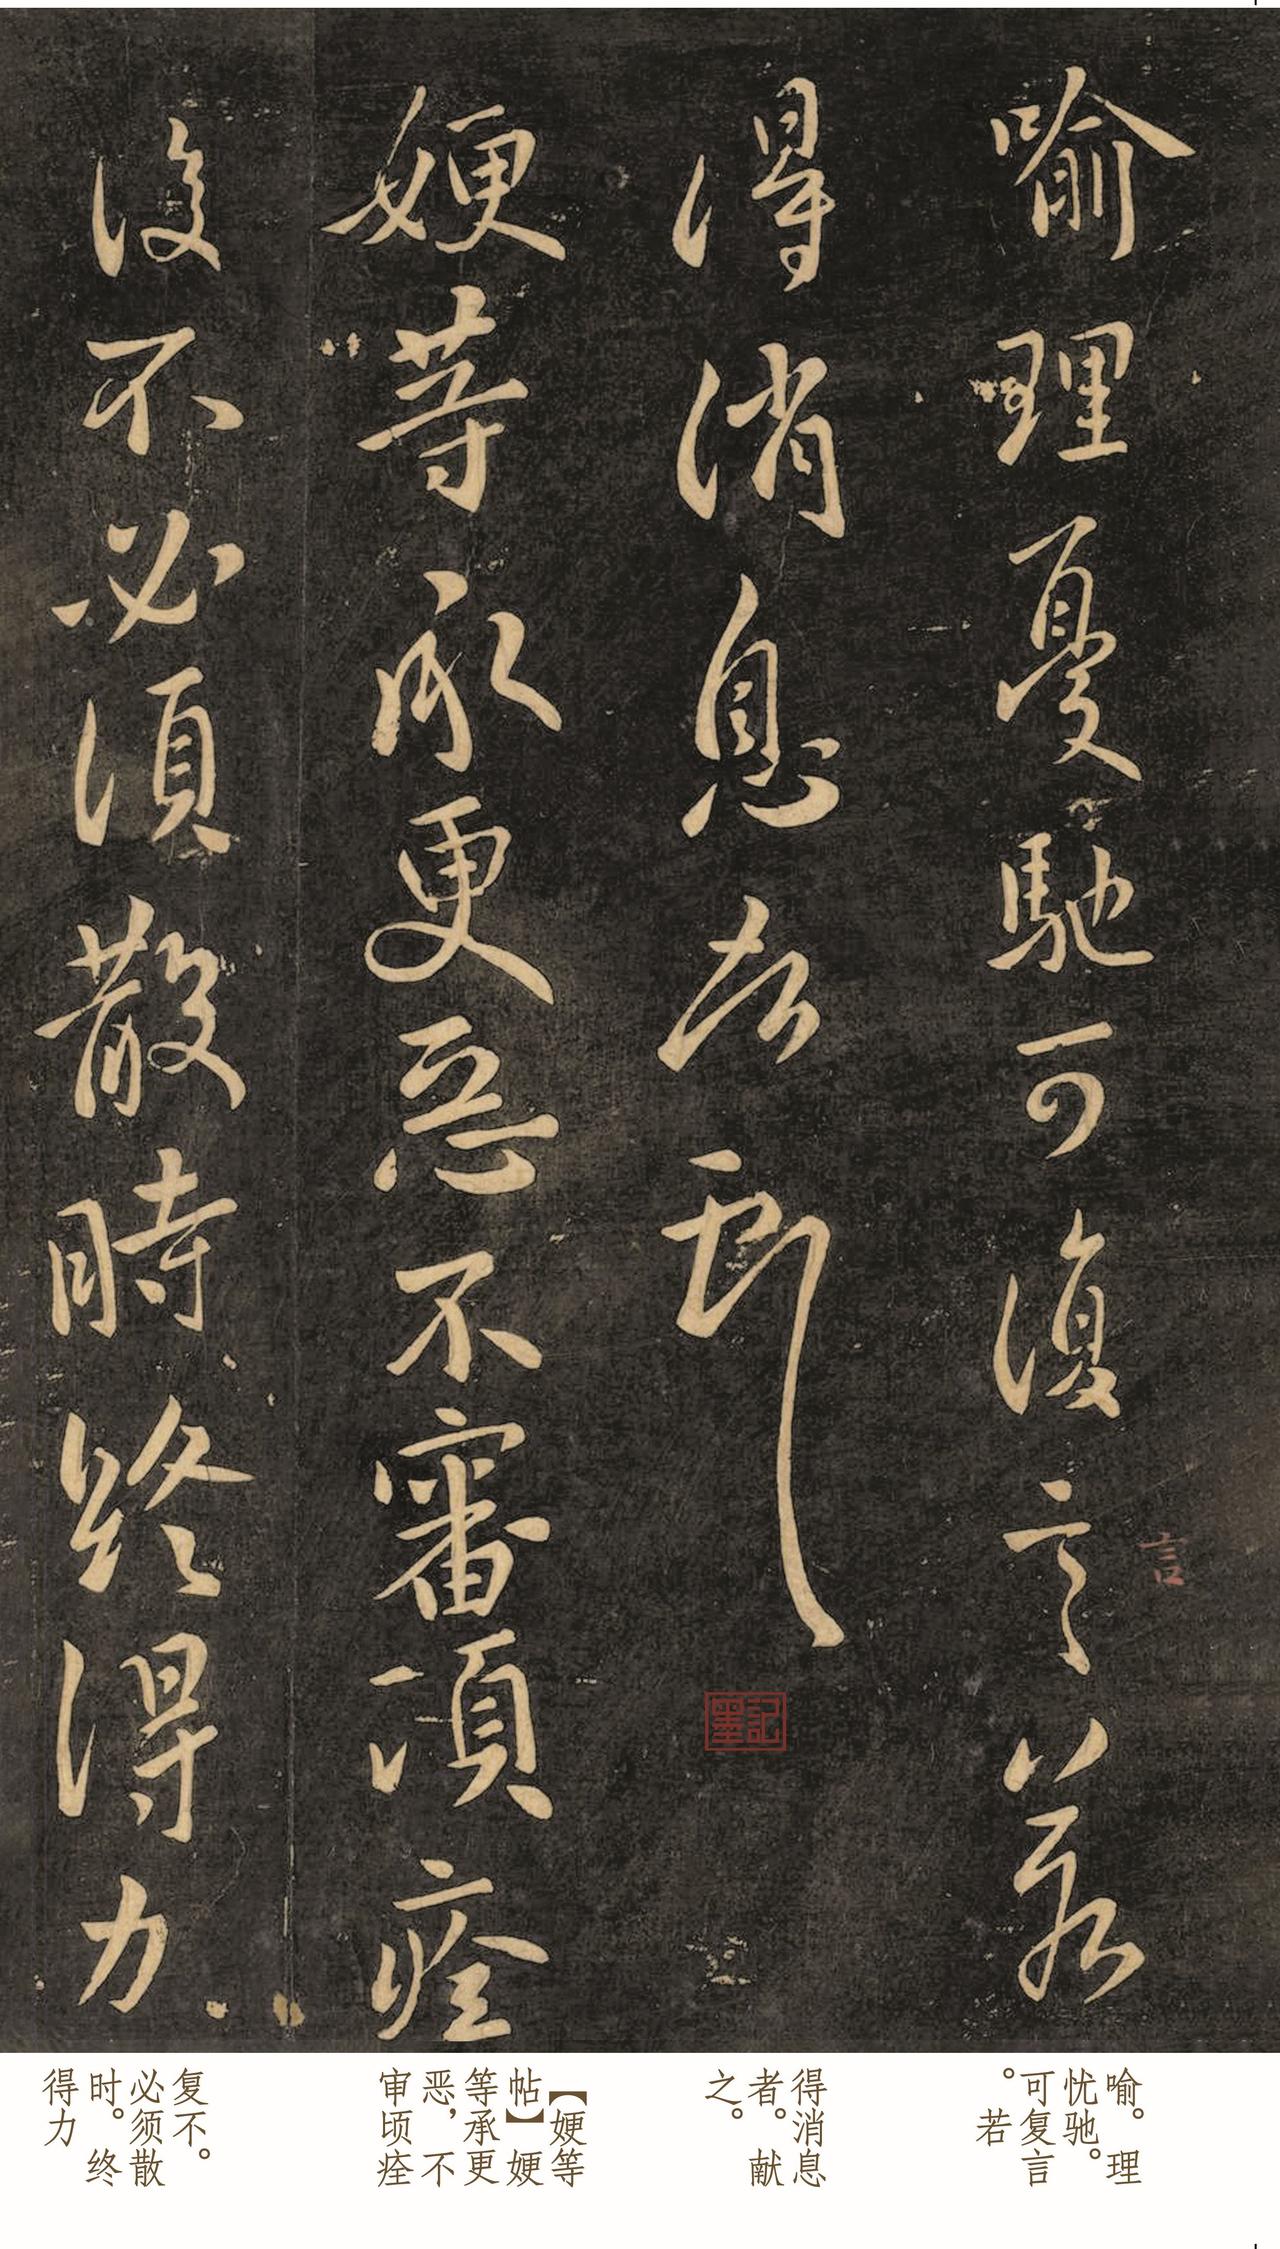 喻理憂馳可復言若
言
得消息者獻之
墨記
媬等承更惡不審頃痊
復不必須散時終得力
喻。理
忧驰。
可复言
。若
得消息
者。献
之。
【媬等
帖】媬
等承更
恶，不
审顷痊
复不。
必须散
时。终
得力